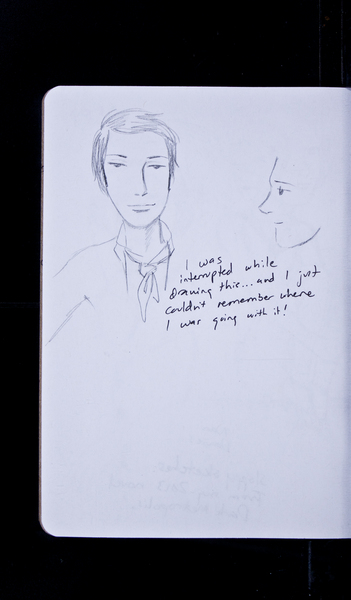 I was
interrupted while
drawing this... and I just
couldn't remember where
I was going with it!